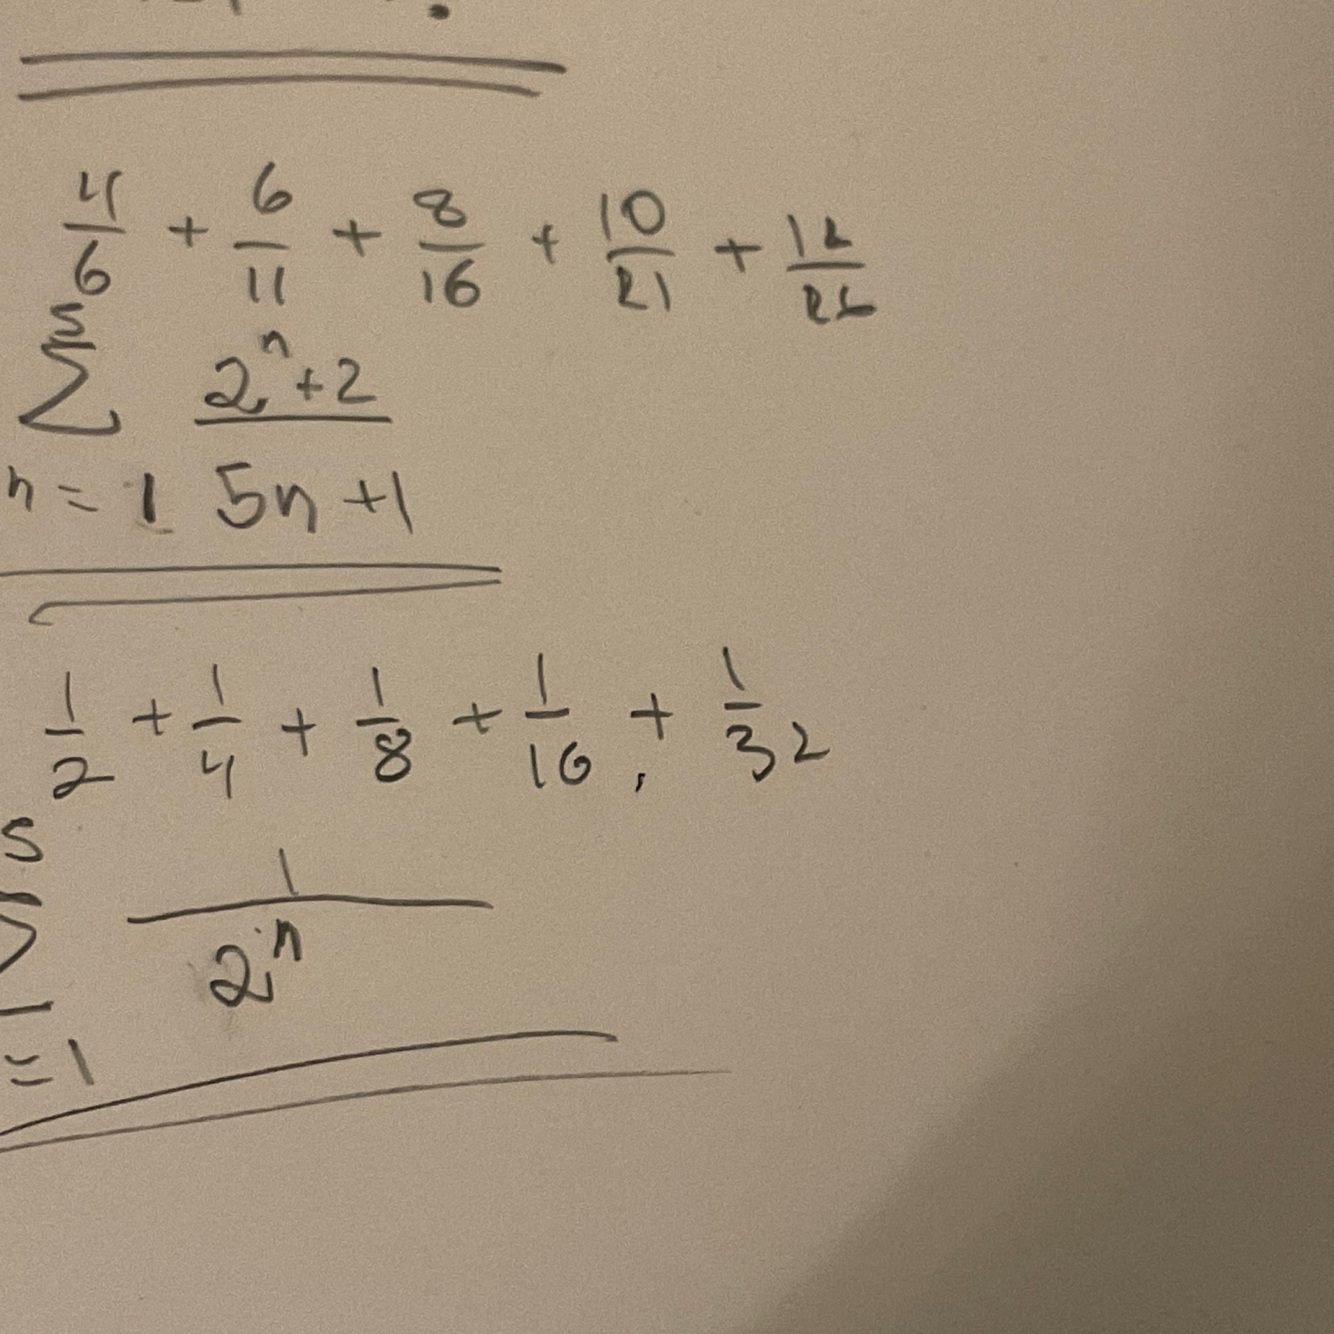 4/6 + 6/11 + 8/16 + 10/21 + 12/26
5
∑ (2ⁿ+2)/(5n+1)
n = 1
1/2 + 1/4 + 1/8 + 1/16, + 1/32
5
∑ 1/2ⁿ
=1